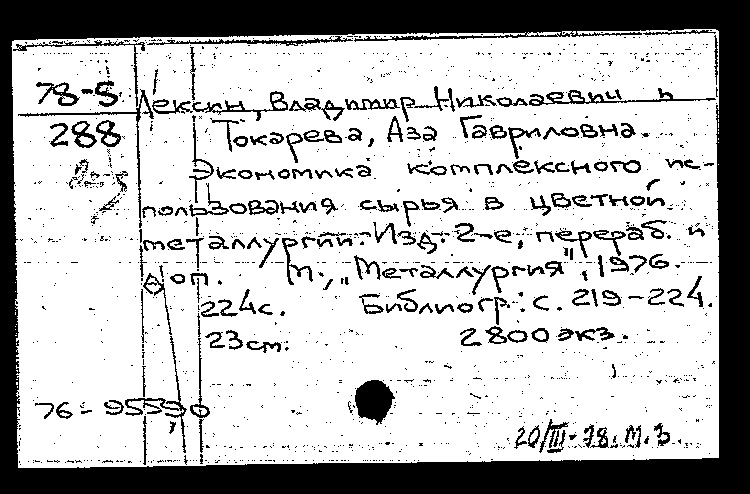 78-5 Лексин, Владимир Николаевич и
288 Токарева, Аза Гавриловна.
Экономика комплексного ис-
пользования сырья в цветной
металлургии. Изд. 2-е, перераб. и
доп. М., "Металлургия", 1976.
224с. Библиогр.: с. 219-224.
23см. 2800 экз.
76-95590
20/III-78. М.З.